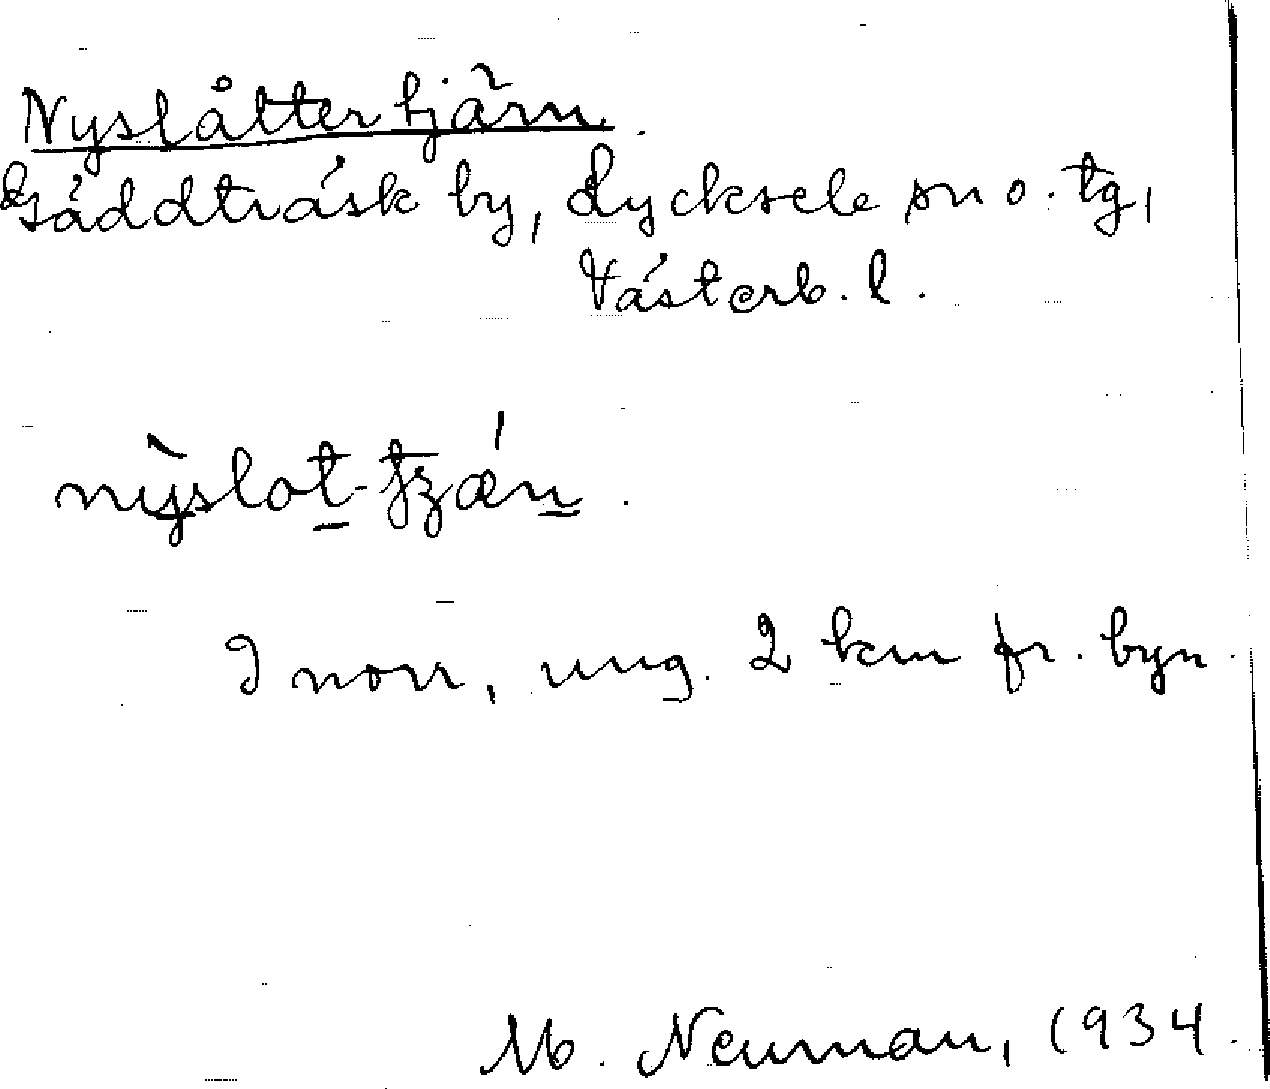 Nyslåttertjärn.
Gäddträsk by, Lycksele sn o. tg,
Västerb. l.
nỳslot-tʒǽn.
I norr, ung. 2 km fr. byn.
M. Neuman, 1934.